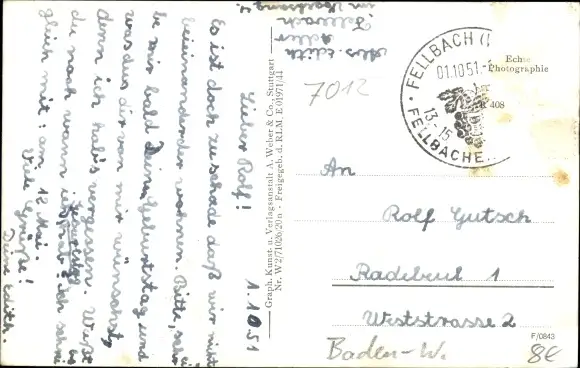 1.10.51
Lieber Rolf!
Es ist doch zu schade daß wir nicht
beieinander wohnen. Bitte,
be mir bald Deinen Geburtstag und
was du dir von mir wünschst,
denn ich hab's vergessen. Weißt
du noch wann ich hab? Ich schrei
Geburtstag
es
gleich mit: am 12. Mai.
Viele Grüße!
Deine Edith.
Abs. Edith
Adler
Fellbach
Graph. Kunst. u. Verlagsanstalt A. Weber & Co., Stuttgart
Nr. W 2/71026/20 n - Freigegeb. d. RLM. E 01971/44
7012
FELLBACH (
01.10.51.-
13-15
FELLBACHE
Echte
Photographie
408
An
Rolf Gutsch
Radebeul 1
Weststrasse 2
F/0843
Baden-W.
8€